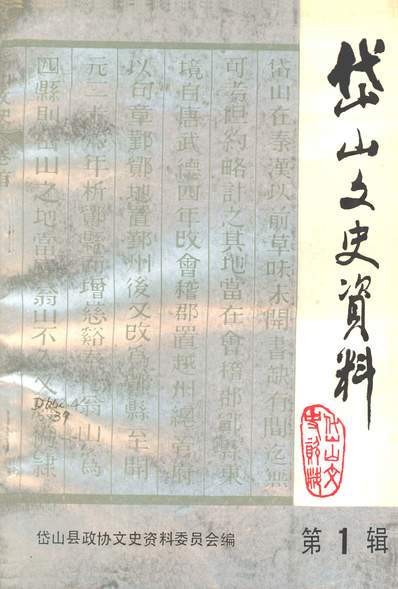 岱山文史資料
岱山文
史資料
第1辑
岱山县政协文史资料委员会编
岱山在秦漢以前草昧未開書缺有間迄無
可考但約略計之其地當在會稽郡鄮縣東
境自唐武德四年改會稽郡置越州總管府
以句章鄞鄮地置鄞州後又改爲鄮縣至開
元二十六年析鄮縣增慈谿
翁山爲
四縣則岱山之地當
翁山不久又
隸